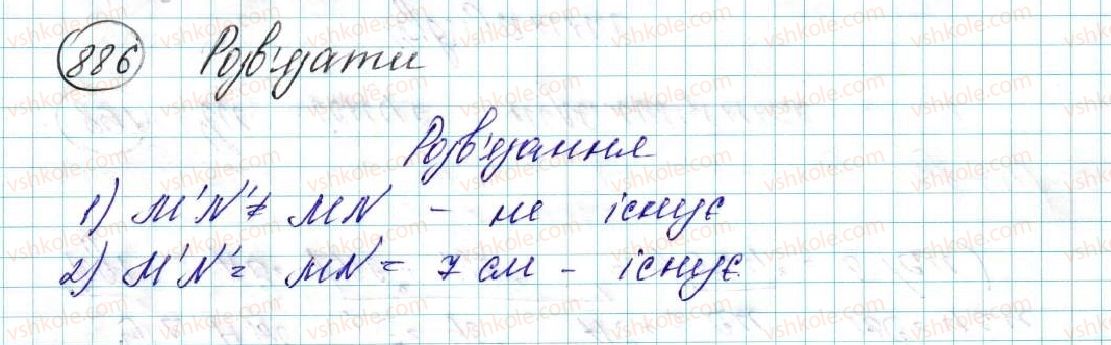 886 Розв'язати
Розв'язання
1) M'N' ≠ MN - не існує
2) M'N' = MN = 7 см - існує